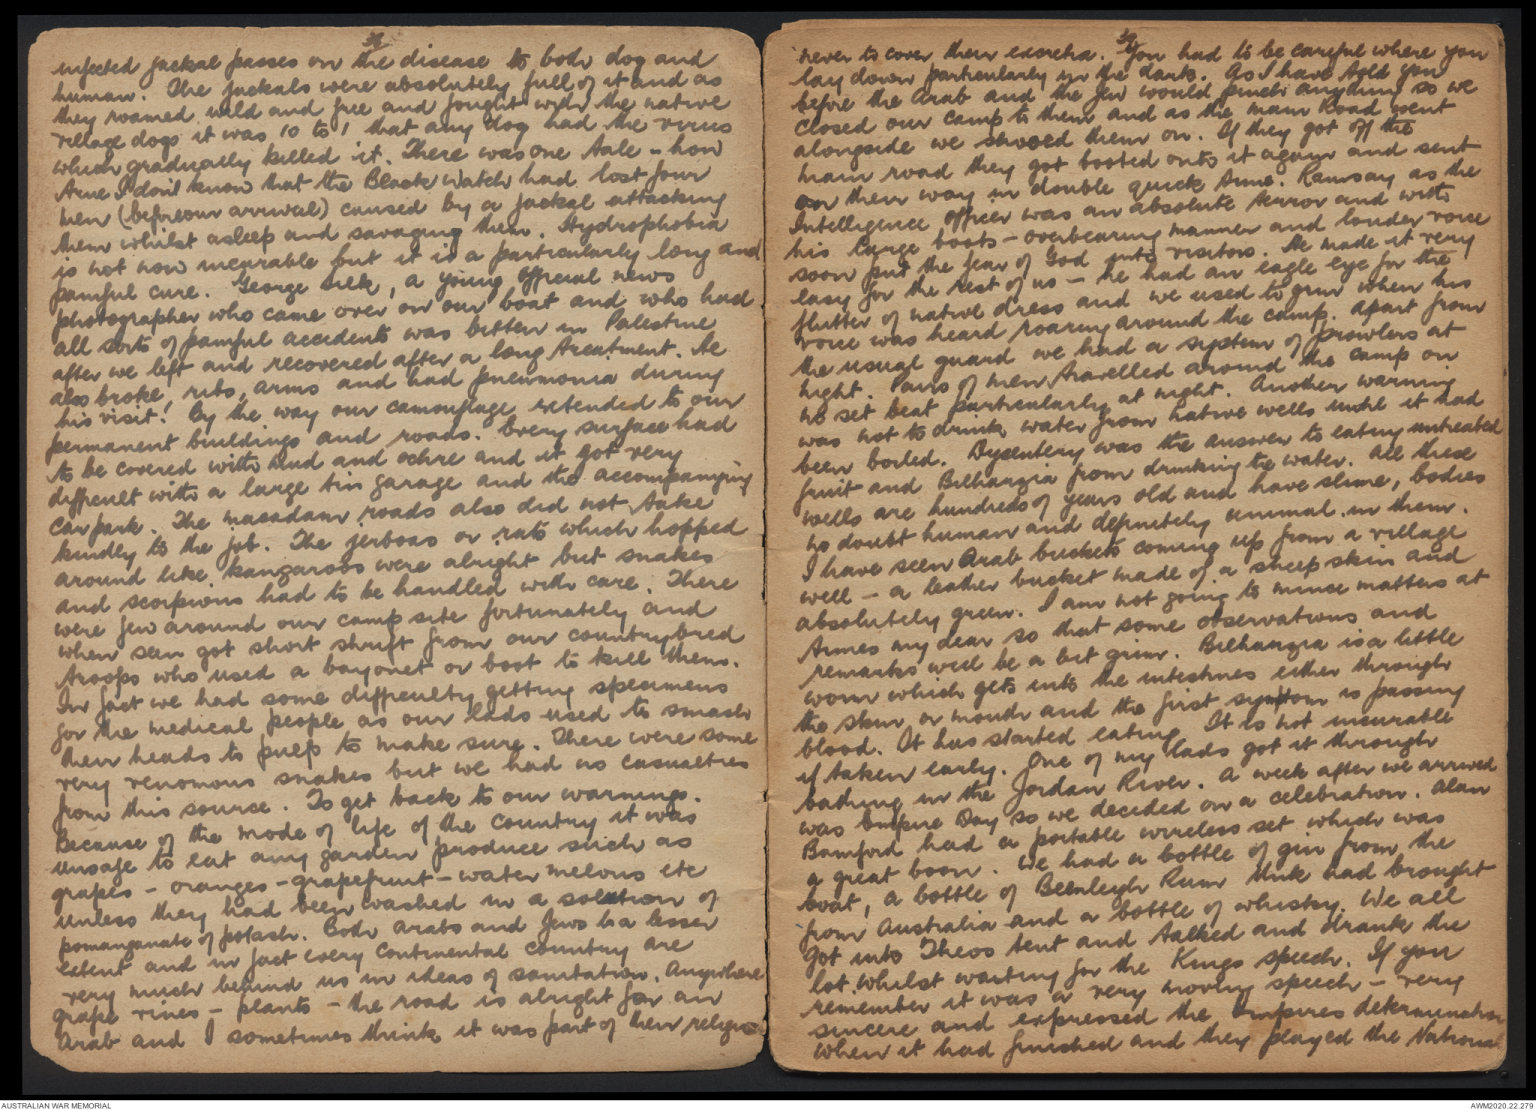 infected jackal passes on the disease to both dog and
human. The jackals were absolutely full of it and as
they roamed wild and free and fought with the native
village dogs it was 10 to 1 that any dog had the virus
which gradually killed it. There was one tale - how
true I don't know that the Black Watch had lost four
men (before our arrival) caused by a jackal attacking
them whilst asleep and savaging them. Hydrophobia
is not now incurable but it is a particularly long and
painful cure. George Silk, a young official news
photographer who came over on our boat and who had
all sorts of painful accidents was bitten in Palestine
after we left and recovered after a long treatment. He
also broke, ribs, arms and had pneumonia during
his visit! By the way our camouflage extended to our
permanent buildings and roads. Every surface had
to be covered with mud and ochre and it got very
difficult with a large tin garage and the accompanying
car park. The macadam roads also did not take
kindly to the job. The jerboas or rats which hopped
around like kangaroos were alright but snakes
and scorpions had to be handled with care. There
were few around our camp site fortunately and
when seen got short shrift from our country bred
troops who used a bayonet or boot to kill them.
In fact we had some difficulty getting specimens
for the medical people as our lads used to smash
their heads to pulp to make sure. There were some
very venomous snakes but we had no casualties
from this source. To get back to our warnings.
Because of the mode of life of the country it was
unsafe to eat any garden produce such as
grapes - oranges - grapefruit - water melons etc
unless they had been washed in a solution of
pomanganate of potash. Both Arabs and Jews to a lesser
extent and in fact every continental country are
very much behind us in ideas of sanitation. Anywhere
grape vines - plants - the road is alright for an
Arab and I sometimes think it was part of their religion
never to cover their excreta. You had to be careful where you
lay down particularly in the dark. As I have told you
before the Arab and the Jew would pinch anything so we
closed our camp to them and as the main road went
alongside we shooed them on. If they got off the
main road they got booted onto it again and sent
on their way in double quick time. Ramsay as the
Intelligence officer was an absolute terror and with
his large boots - overbearing manner and louder voice
soon put the fear of God into visitors. He made it very
easy for the rest of us - he had an eagle eye for the
flutter of native dress and we used to grin when his
voice was heard roaring around the camp. Apart from
the usual guard we had a system of prowlers at
night. Pairs of men travelled around the camp on
no set beat particularly at night. Another warning
was not to drink water from native wells until it had
been boiled. Dysentery was the answer to eating untreated
fruit and Bilharzia from drinking the water. All these
wells are hundreds of years old and have slime, bodies
no doubt human and definitely animal in them.
I have seen Arab buckets coming up from a village
well - a leather bucket made of a sheep skin and
absolutely green. I am not going to mince matters at
times my dear so that some observations and
remarks will be a bit grim. Bilharzia is a little
worm which gets into the intestines either through
the skin or mouth and the first symptom is passing
blood. It has started eating. It is not incurable
if taken early. One of my lads got it through
bathing in the Jordan River. A week after we arrived
was Empire Day so we decided on a celebration. Alan
Bamford had a portable wireless set which was
a great boon. We had a bottle of gin from the
boat, a bottle of Beenleigh Rum Mick had brought
from Australia and a bottle of whisky. We all
got into Theos tent and talked and drank the
lot whilst waiting for the Kings speech. If you
remember it was a very moving speech - very
sincere and expressed the Empires determination
when it had finished and they played the National
AUSTRALIAN WAR MEMORIAL
AWM2020.22.279